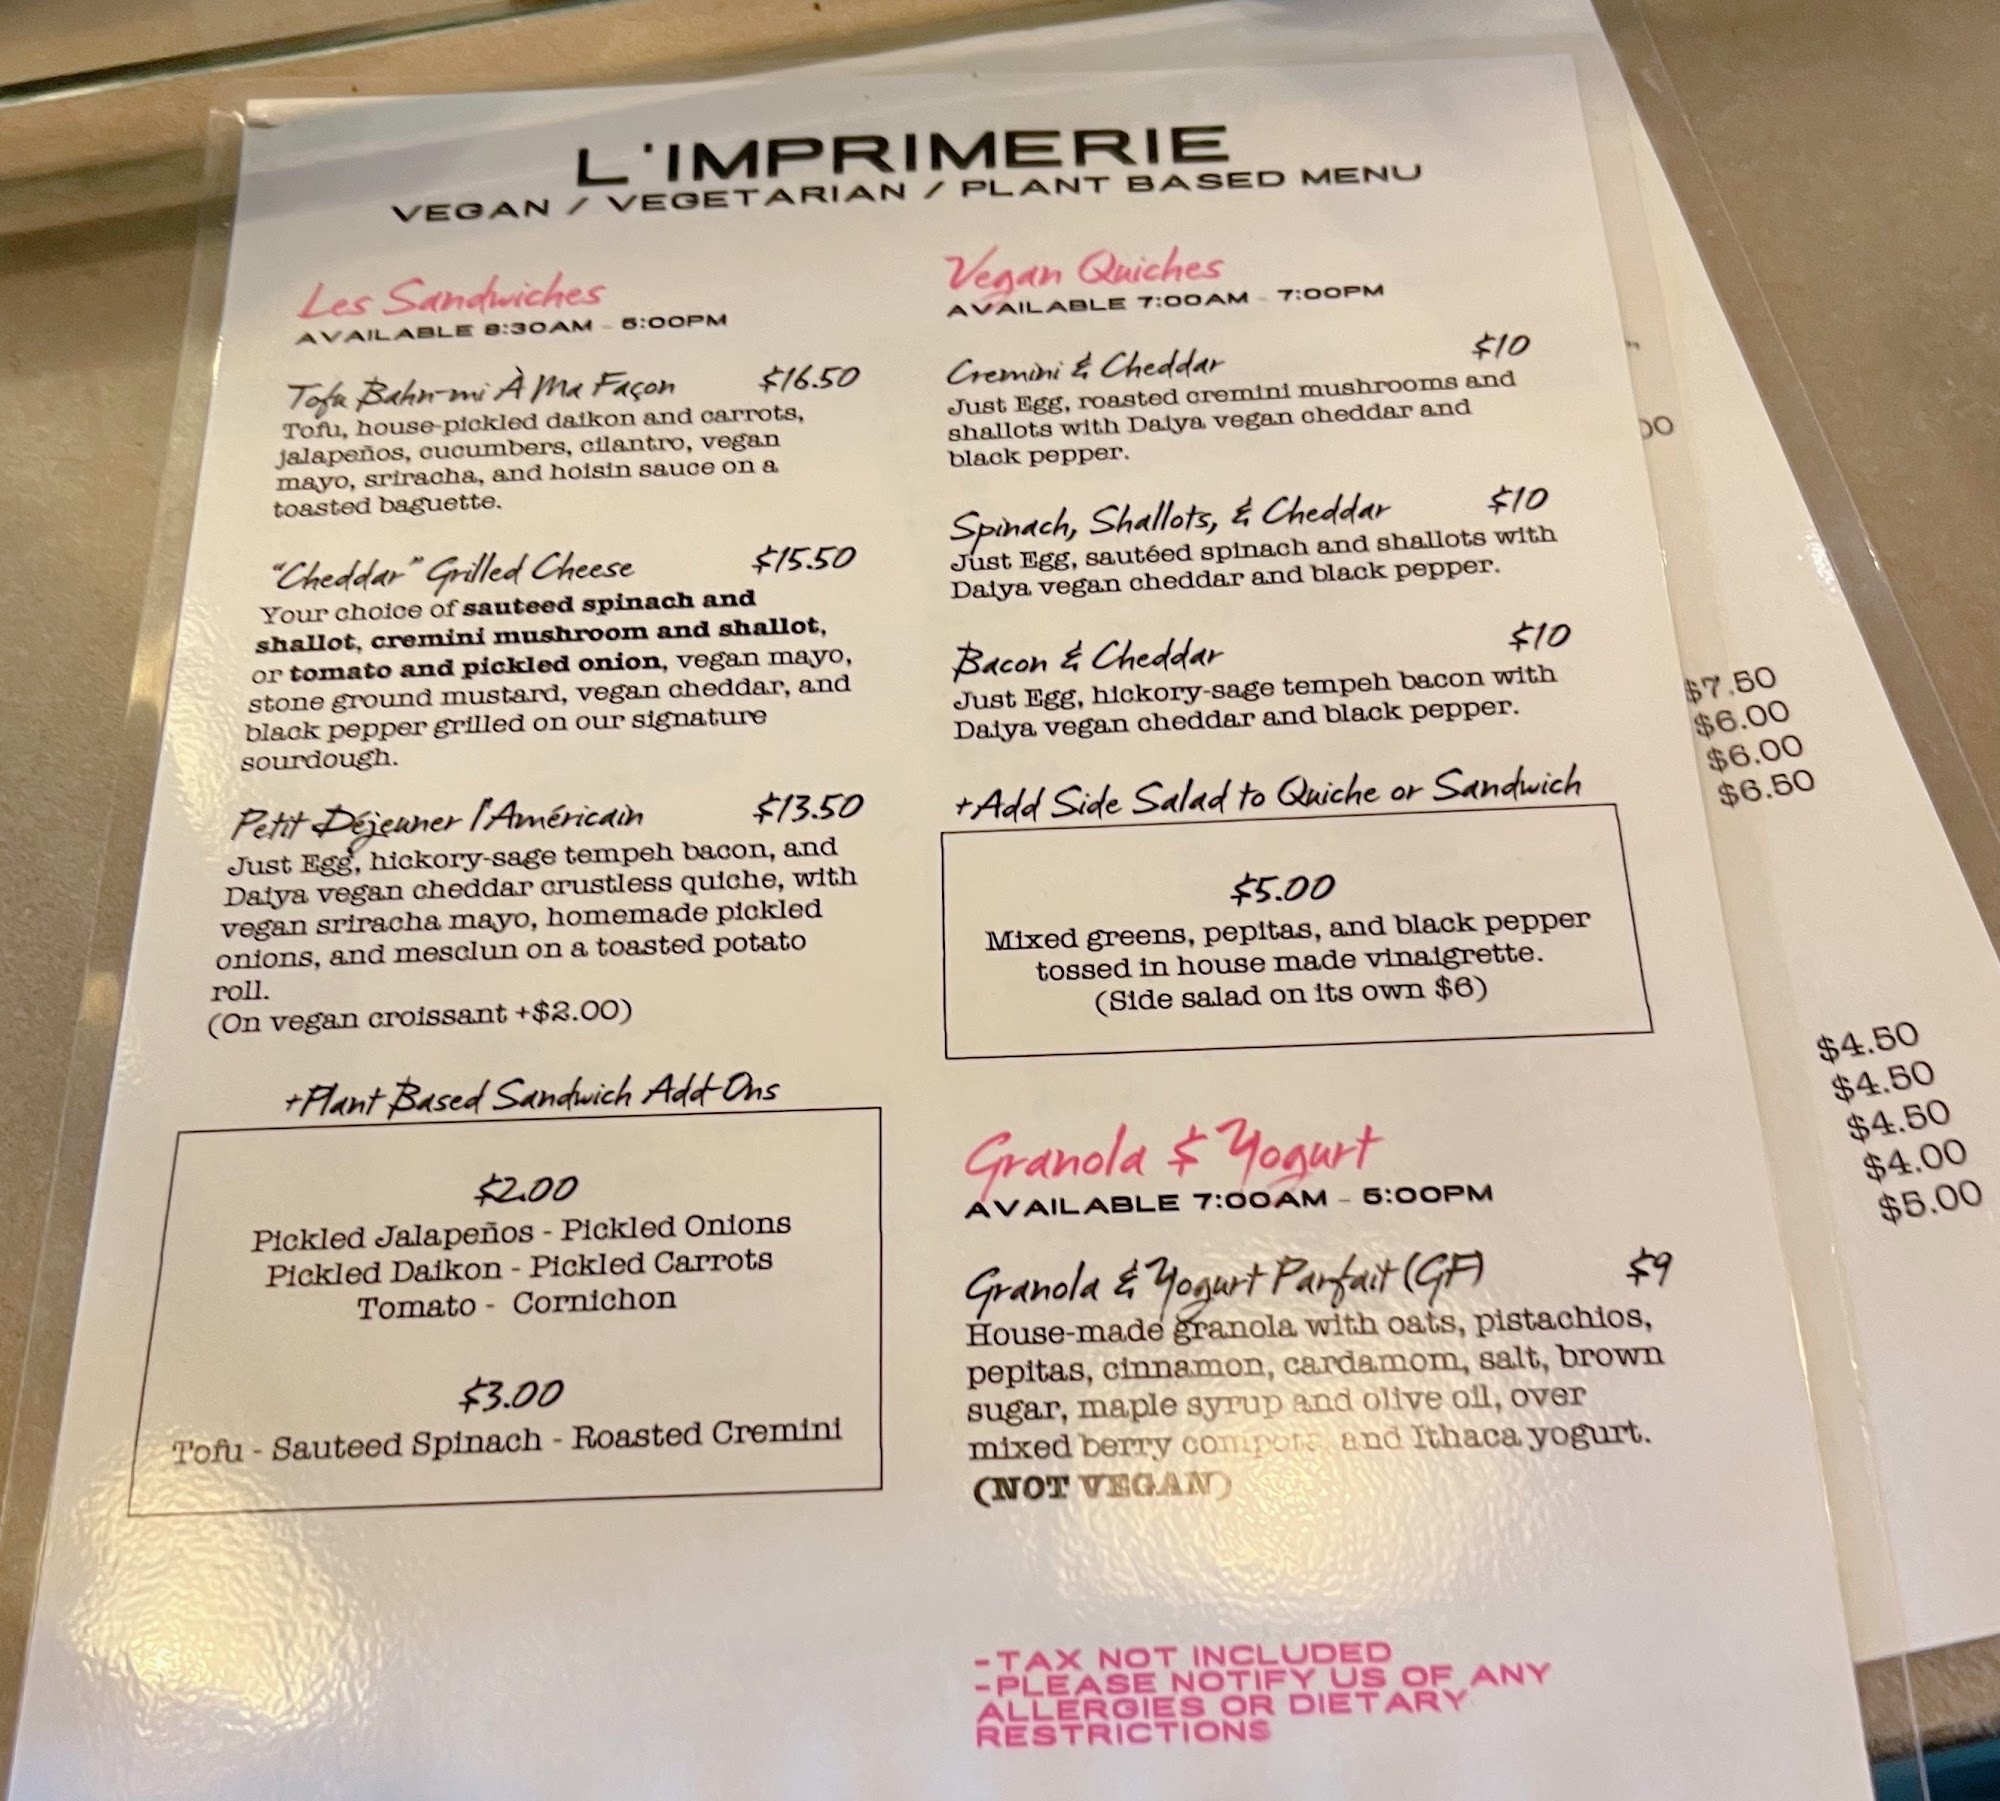 L'IMPRIMERIE
VEGAN / VEGETARIAN / PLANT BASED MENU
Les Sandwiches
AVAILABLE 8:30AM - 5:00PM
Tofu Bahn-mi À Ma Façon $16.50
Tofu, house-pickled daikon and carrots,
jalapeños, cucumbers, cilantro, vegan
mayo, sriracha, and hoisin sauce on a
toasted baguette.
"Cheddar" Grilled Cheese $15.50
Your choice of sauteed spinach and
shallot, cremini mushroom and shallot,
or tomato and pickled onion, vegan mayo,
stone ground mustard, vegan cheddar, and
black pepper grilled on our signature
sourdough.
Petit Déjeuner l'Américain $13.50
Just Egg, hickory-sage tempeh bacon, and
Daiya vegan cheddar crustless quiche, with
vegan sriracha mayo, homemade pickled
onions, and mesclun on a toasted potato
roll.
(On vegan croissant +$2.00)
+Plant Based Sandwich Add-Ons
$2.00
Pickled Jalapeños - Pickled Onions
Pickled Daikon - Pickled Carrots
Tomato - Cornichon
$3.00
Tofu - Sauteed Spinach - Roasted Cremini
Vegan Quiches
AVAILABLE 7:00AM - 7:00PM
Cremini & Cheddar $10
Just Egg, roasted cremini mushrooms and
shallots with Daiya vegan cheddar and
black pepper.
Spinach, Shallots, & Cheddar $10
Just Egg, sautéed spinach and shallots with
Daiya vegan cheddar and black pepper.
Bacon & Cheddar $10
Just Egg, hickory-sage tempeh bacon with
Daiya vegan cheddar and black pepper.
+Add Side Salad to Quiche or Sandwich
$5.00
Mixed greens, pepitas, and black pepper
tossed in house made vinaigrette.
(Side salad on its own $6)
Granola & Yogurt
AVAILABLE 7:00AM - 5:00PM
Granola & Yogurt Parfait (GF) $9
House-made granola with oats, pistachios,
pepitas, cinnamon, cardamom, salt, brown
sugar, maple syrup and olive oil, over
mixed berry compote, and Ithaca yogurt.
(NOT VEGAN)
-TAX NOT INCLUDED
-PLEASE NOTIFY US OF ANY
ALLERGIES OR DIETARY
RESTRICTIONS
$7.50
$6.00
$6.00
$6.50
$4.50
$4.50
$4.50
$4.00
$5.00